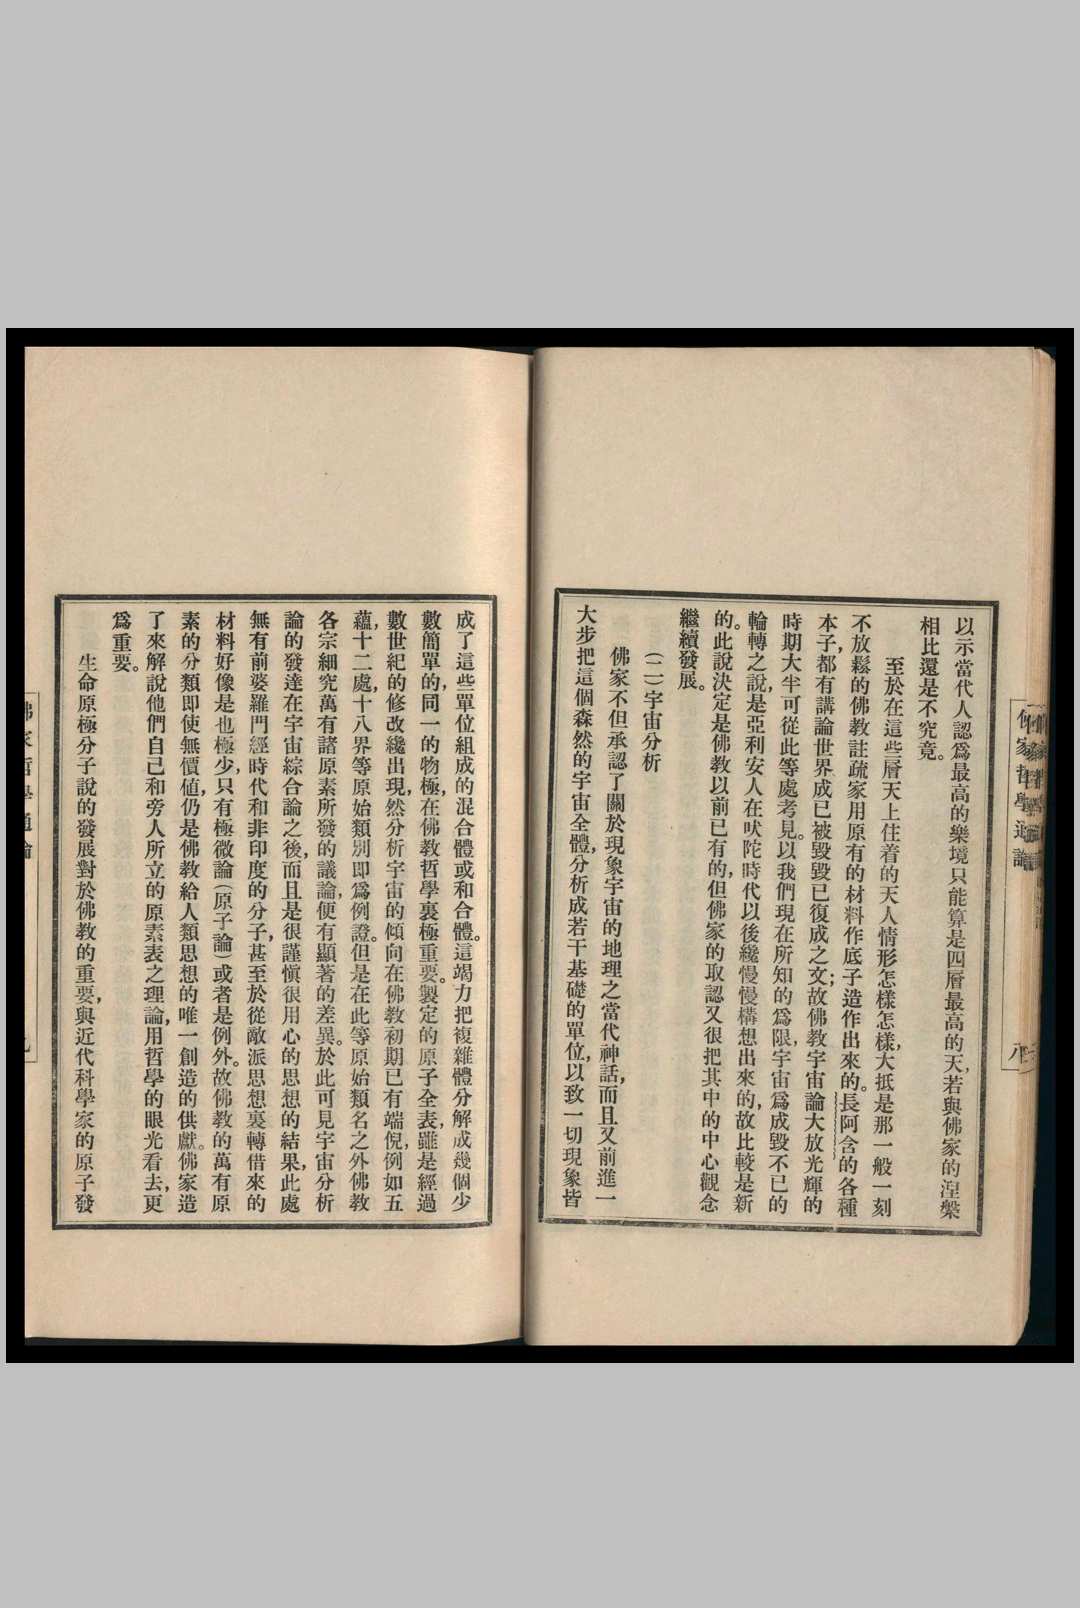 以示當代人認爲最高的樂境只能算是四層最高的天，若與佛家的涅槃
相比還是不究竟。
至於在這些層天上住着的天人情形怎樣怎樣，大抵是那一般一刻
不放鬆的佛教註疏家用原有的材料作底子造作出來的。長阿含的各種
本子，都有講論世界成已被毀毀已復成之文；故佛教宇宙論大放光輝的
時期大半可從此等處考見。以我們現在所知的爲限，宇宙爲成毀不已的
輪轉之說，是亞利安人在吠陀時代以後纔慢慢構想出來的，故比較是新
的。此說決定是佛教以前已有的，但佛家的取認又很把其中的中心觀念
繼續發展。
（二）宇宙分析
佛家不但承認了關於現象宇宙的地理之當代神話，而且又前進一
大步把這個森然的宇宙全體，分析成若干基礎的單位，以致一切現象皆
成了這些單位組成的混合體或和合體。這竭力把複雜體分解成幾個少
數簡單的，同一的物極，在佛教哲學裏極重要。製定的原子全表，雖是經過
數世紀的修改纔出現，然分析宇宙的傾向在佛教初期已有端倪，例如五
蘊，十二處，十八界等原始類別即爲例證。但是在此等原始類名之外佛教
各宗細究萬有諸原素所發的議論，便有顯著的差異。於此可見宇宙分析
論的發達在宇宙綜合論之後，而且是很謹愼很用心的思想的結果，此處
無有前婆羅門經時代和非印度的分子，甚至於從敵派思想裏轉借來的
材料好像是也極少，只有極微論（原子論）或者是例外。故佛教的萬有原
素的分類即使無價值，仍是佛教給人類思想的唯一創造的供獻。佛家造
了來解說他們自己和旁人所立的原素表之理論，用哲學的眼光看去，更
爲重要。
生命原極分子說的發展對於佛教的重要，與近代科學家的原子發
佛家哲學通論
八
佛家哲學通論
九